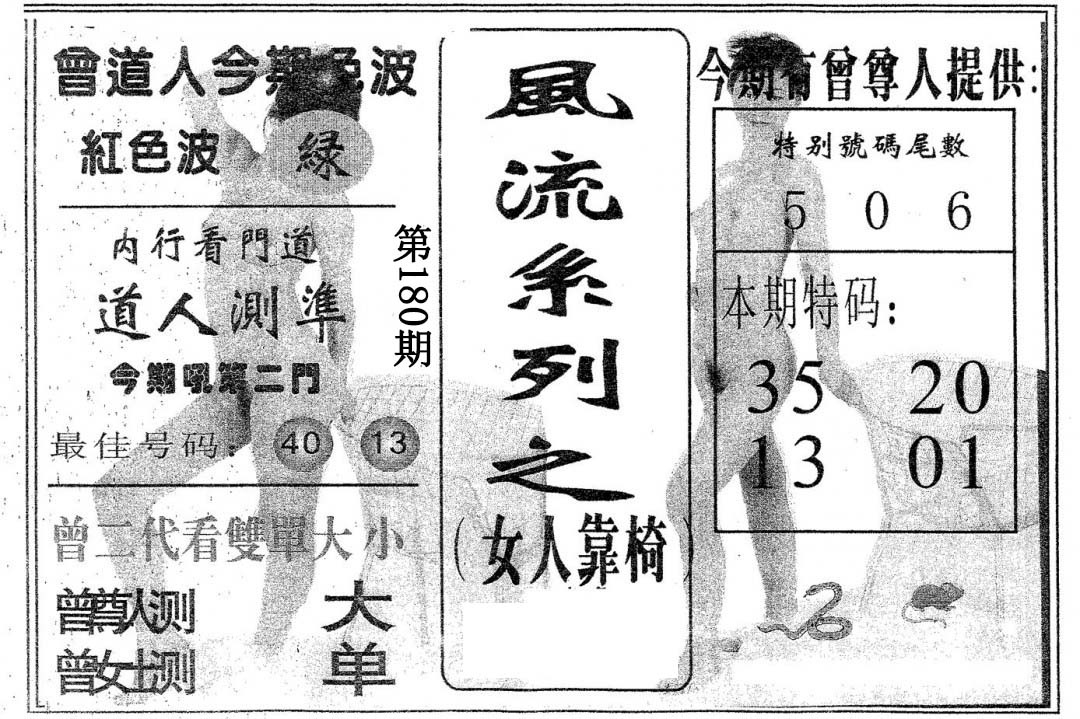 曾道人今期色波
紅色波 緑
内行看門道
道人測準
今期吼第二門
最佳号码: 40 13
曾二代看雙單大小
曾尊人测 大
曾女士测 单
第180期
風流系列之
(女人靠椅)
今期有曾尊人提供:
特别號碼尾數
5 0 6
本期特码:
35 20
13 01